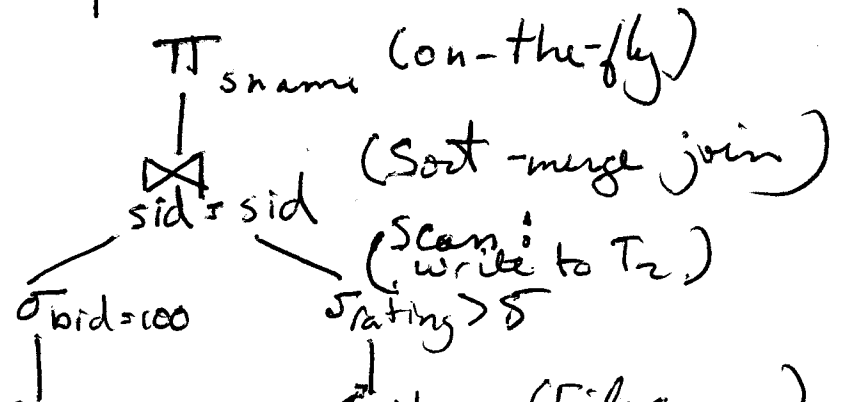 π sname (on-the-fly)
⋈ (Sort-merge join)
sid = sid
(Scan;
write to T2)
σ bid=100 σ rating > 5